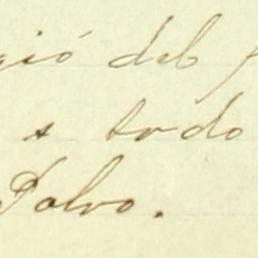 gió del
s todo
Polvo.